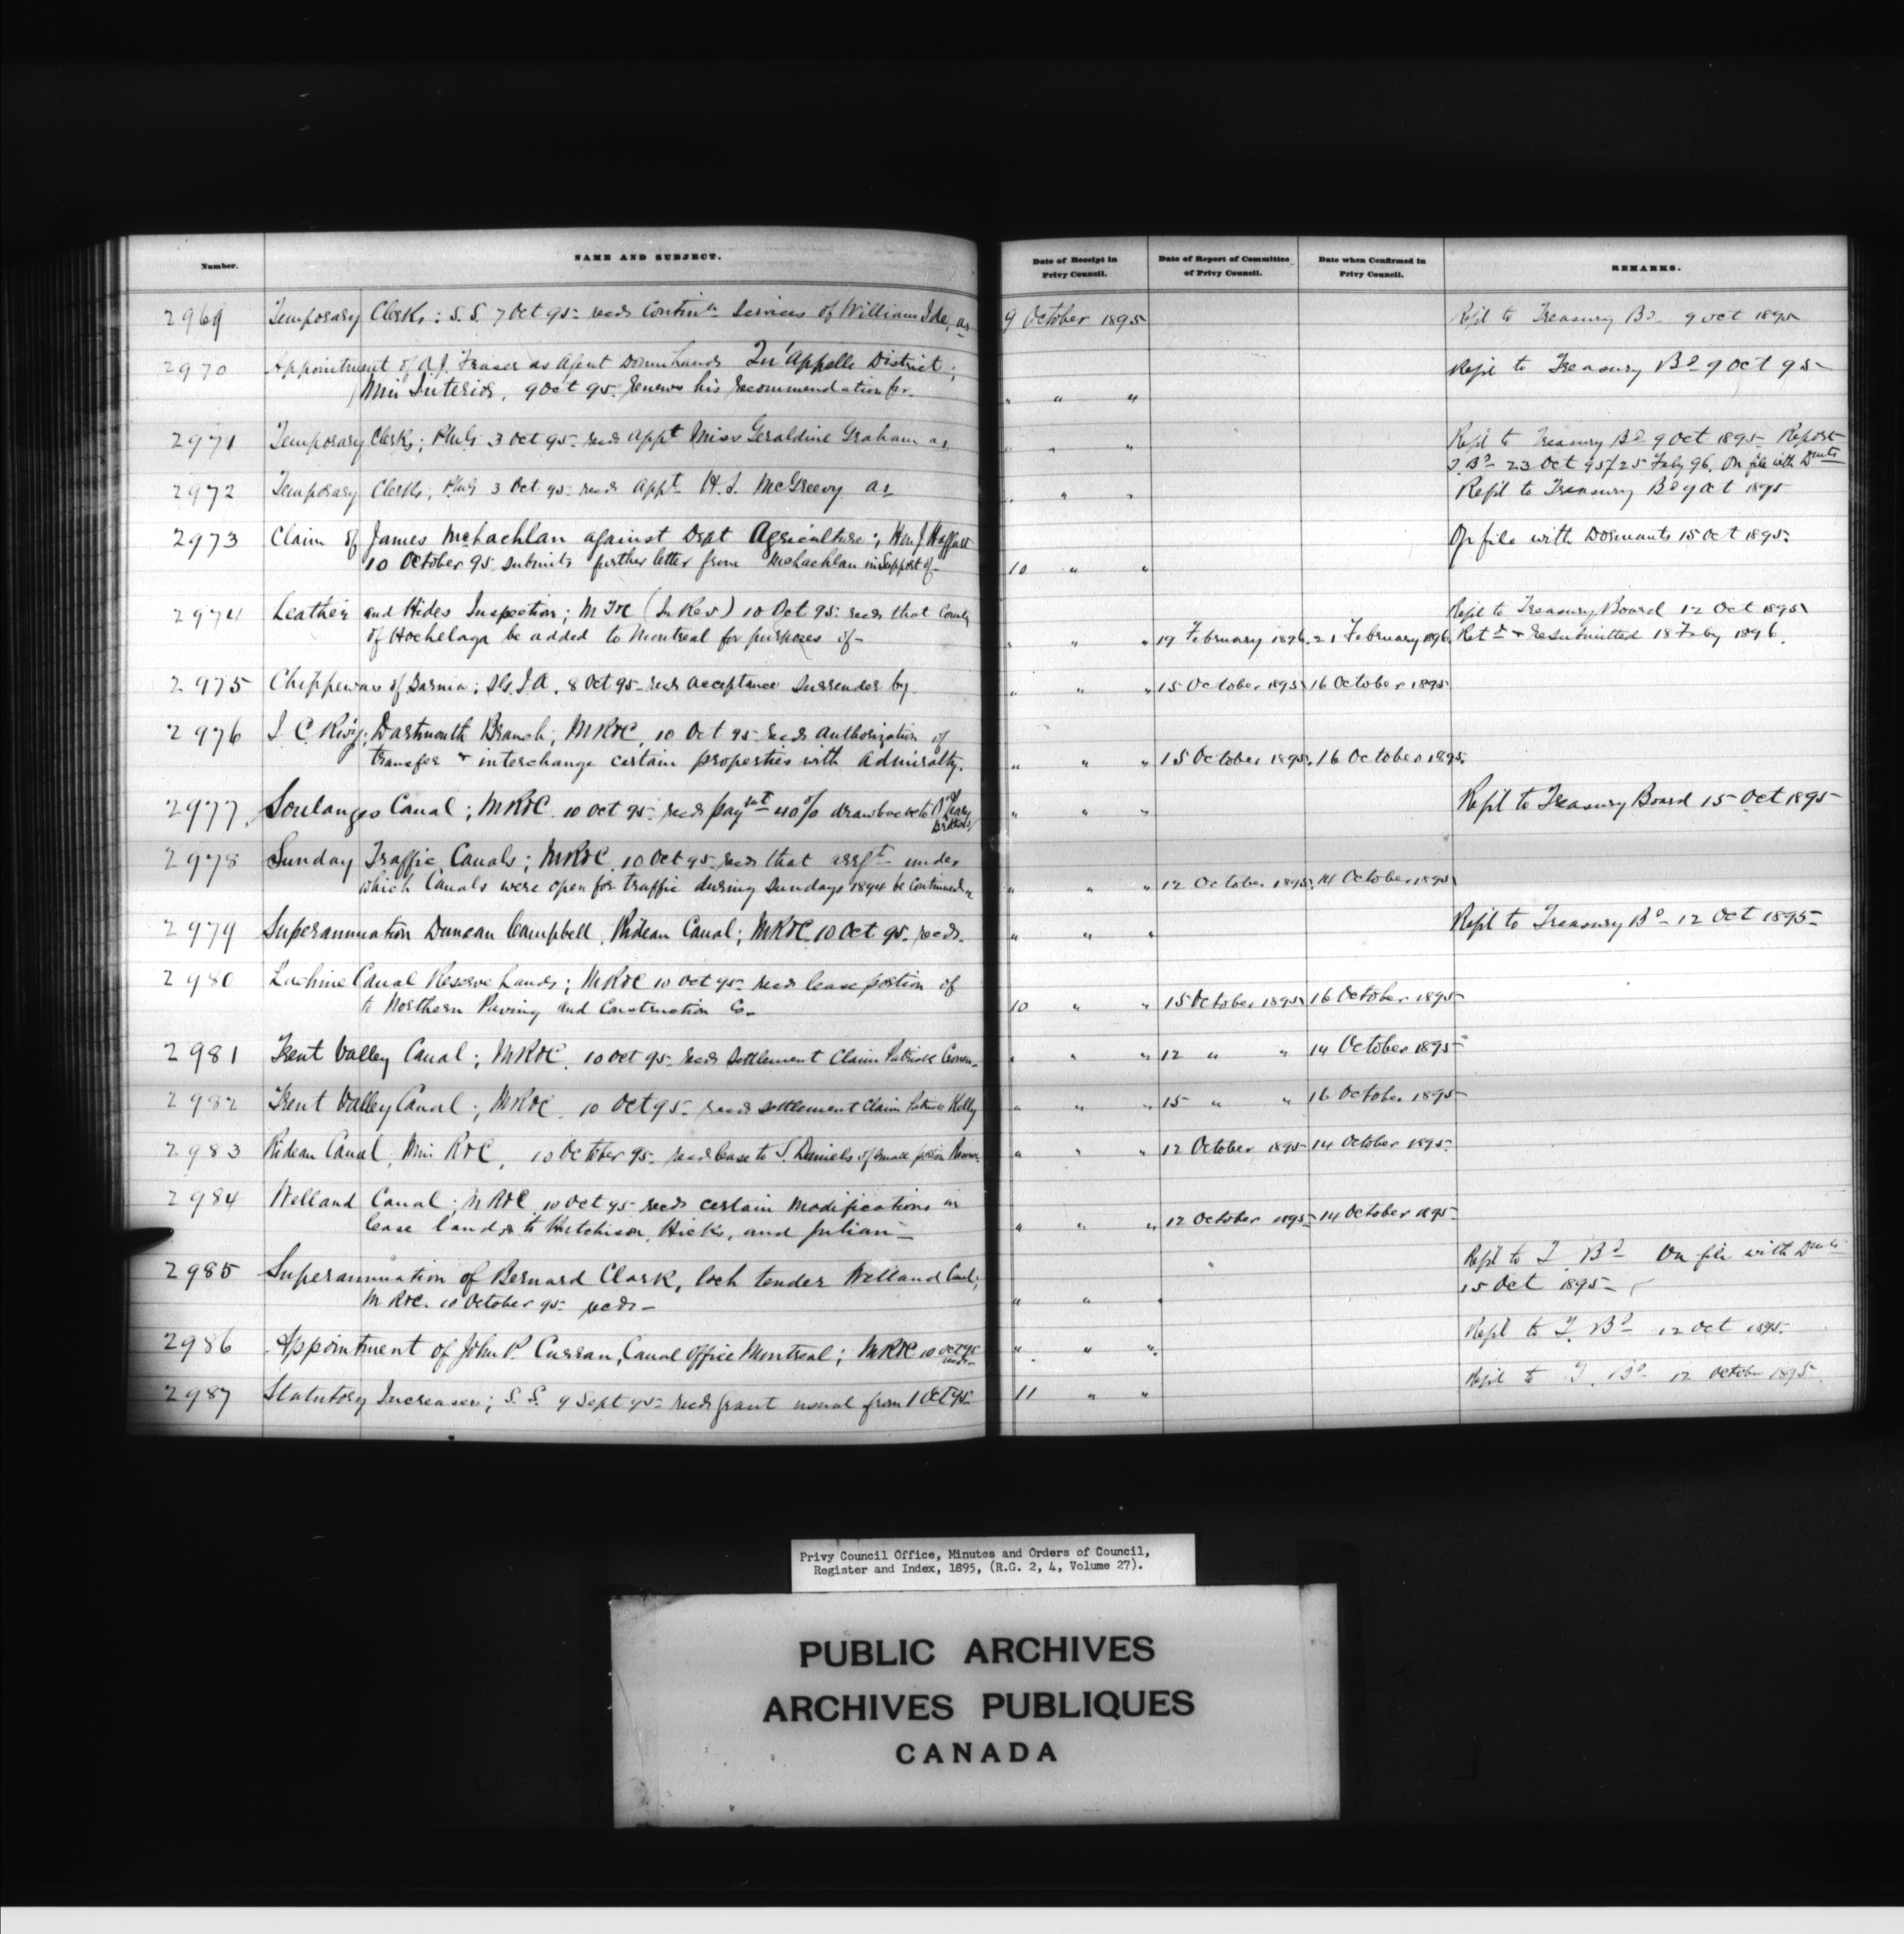 Number. NAME AND SUBJECT. Date of Receipt in Privy Council. Date of Report of Committee of Privy Council. Date when Confirmed in Privy Council. REMARKS.
2969 Temporary Clerks; S.S. 7 Oct 95- recds Contin^ce Services of William Ide, as 9 October 1895 Ref'd to Treasury B^d 9 Oct 1895
2970 Appointment of A.J. Fraser as Agent Domn Lands Qu'Appelle District;
Min Interior, 9 Oct 95- renews his recommendation for- " " " Ref'd to Treasury B^d 9 Oct 95-
2971 Temporary Clerks; 3 Oct 95- recds appt Miss Geraldine Graham as " " " Ref'd to Treasury B^d 9 Oct 1895- Report
T.B^d- 23 Oct 95/25 Feby 96. On file with D^mts
2972 Temporary Clerks; 3 Oct 95- recds appt H. McGreevy as " " " Ref'd to Treasury B^d 9 Oct 1895
2973 Claim of James McLachlan against Dept Agriculture; Hon J Haggart On file with Dormants 15 Oct 1895.
10 October 95 submits further letter from McLachlan in support of- 10 " "
2974 Leather and Hides Inspection; M T&C (In Rev) 10 Oct 95- recds that County Ref'd to Treasury Board 12 Oct 1895
of Hochelaga be added to Montreal for purposes of- " " " 19 February 1896. 21 February 1896. Ret^d & resubmitted 18 Feby 1896.
2975 Chippewas of Sarnia; I.A. 8 Oct 95- recds acceptance surrender by " " " 15 October 1895 16 October 1895
2976 I. C. Rwy; Dartmouth Branch; MR&C 10 Oct 95- recds authorization of
transfer & interchange certain properties with Admiralty. " " " 15 October 1895. 16 October 1895.
2977 Soulanges Canal; MR&C 10 Oct 95- recds pay^mt 40% drawback to O'Leary Brothers " " " Ref'd to Treasury Board 15 Oct 1895
2978 Sunday Traffic Canals; MR&C 10 Oct 95- recds that arrg^t under
which Canals were open for traffic during Sundays 1894 be continued " " " 12 October 1895. 14 October 1895
2979 Superannuation Duncan Campbell, Rideau Canal; MR&C 10 Oct 95- recds- " " " Ref'd to Treasury B^d- 12 Oct 1895-
2980 Lachine Canal Reserve Lands; MR&C 10 Oct 95- recds lease portion of
to Northern Paving and Construction Co- 10 " " 15 October 1895 16 October 1895
2981 Trent Valley Canal; MR&C. 10 Oct 95- recds settlement Claim Patrick " " " 12 " " 14 October 1895
2982 Trent Valley Canal; MR&C. 10 Oct 95- recds settlement Claim Patrick Kelly " " " 15 " " 16 October 1895
2983 Rideau Canal, Min R&C, 10 October 95- recds lease to S. Daniels of small portion Reserve " " " 12 October 1895 14 October 1895
2984 Welland Canal; M R&C 10 Oct 95- recds certain modifications in
lease lands to Hutchison, Hicks, and Julian- " " " 12 October 1895 14 October 1895
2985 Superannuation of Bernard Clark, lock tender Welland Canal; Ref'd to T. B^d- On file with D^mts
M R&C. 10 October 95- recds- " " " 15 Oct 1895-
2986 Appointment of John P. Curran, Canal Office Montreal; MR&C 10 Oct 95 recds- " " " Ref'd to T. B^d- 12 Oct 1895.
2987 Statutory Increases; S.S. 9 Sept 95- recds grant usual from 1 Oct 95- 11 " " Ref'd to T. B^d- 12 October 1895
Privy Council Office, Minutes and Orders of Council,
Register and Index, 1895, (R.G. 2, 4, Volume 27).
PUBLIC ARCHIVES
ARCHIVES PUBLIQUES
CANADA